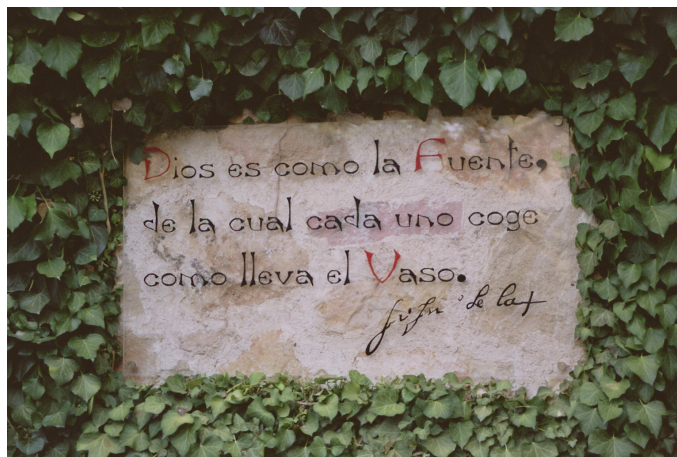 Dios es como la Fuente,
de la cual cada uno coge
como lleva el Vaso.